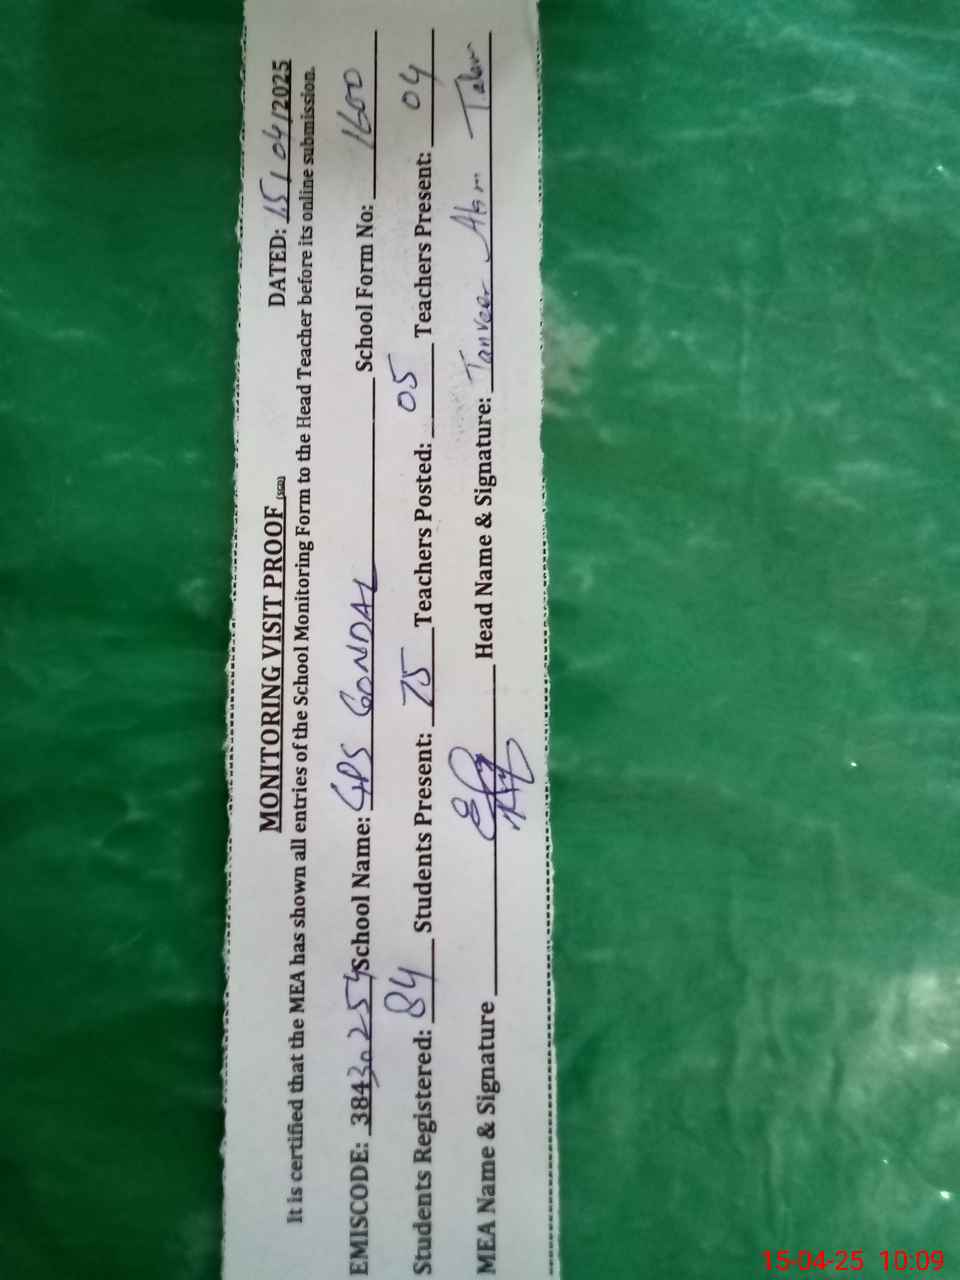 MONITORING VISIT PROOF (SGD)
DATED: 15/04/2025
It is certified that the MEA has shown all entries of the School Monitoring Form to the Head Teacher before its online submission.
EMISCODE: 38430254 School Name: GPS GONDAL School Form No: 1600
Students Registered: 84 Students Present: 75 Teachers Posted: 05 Teachers Present: 04
MEA Name & Signature Head Name & Signature: Tanveer
15-04-25 10:09